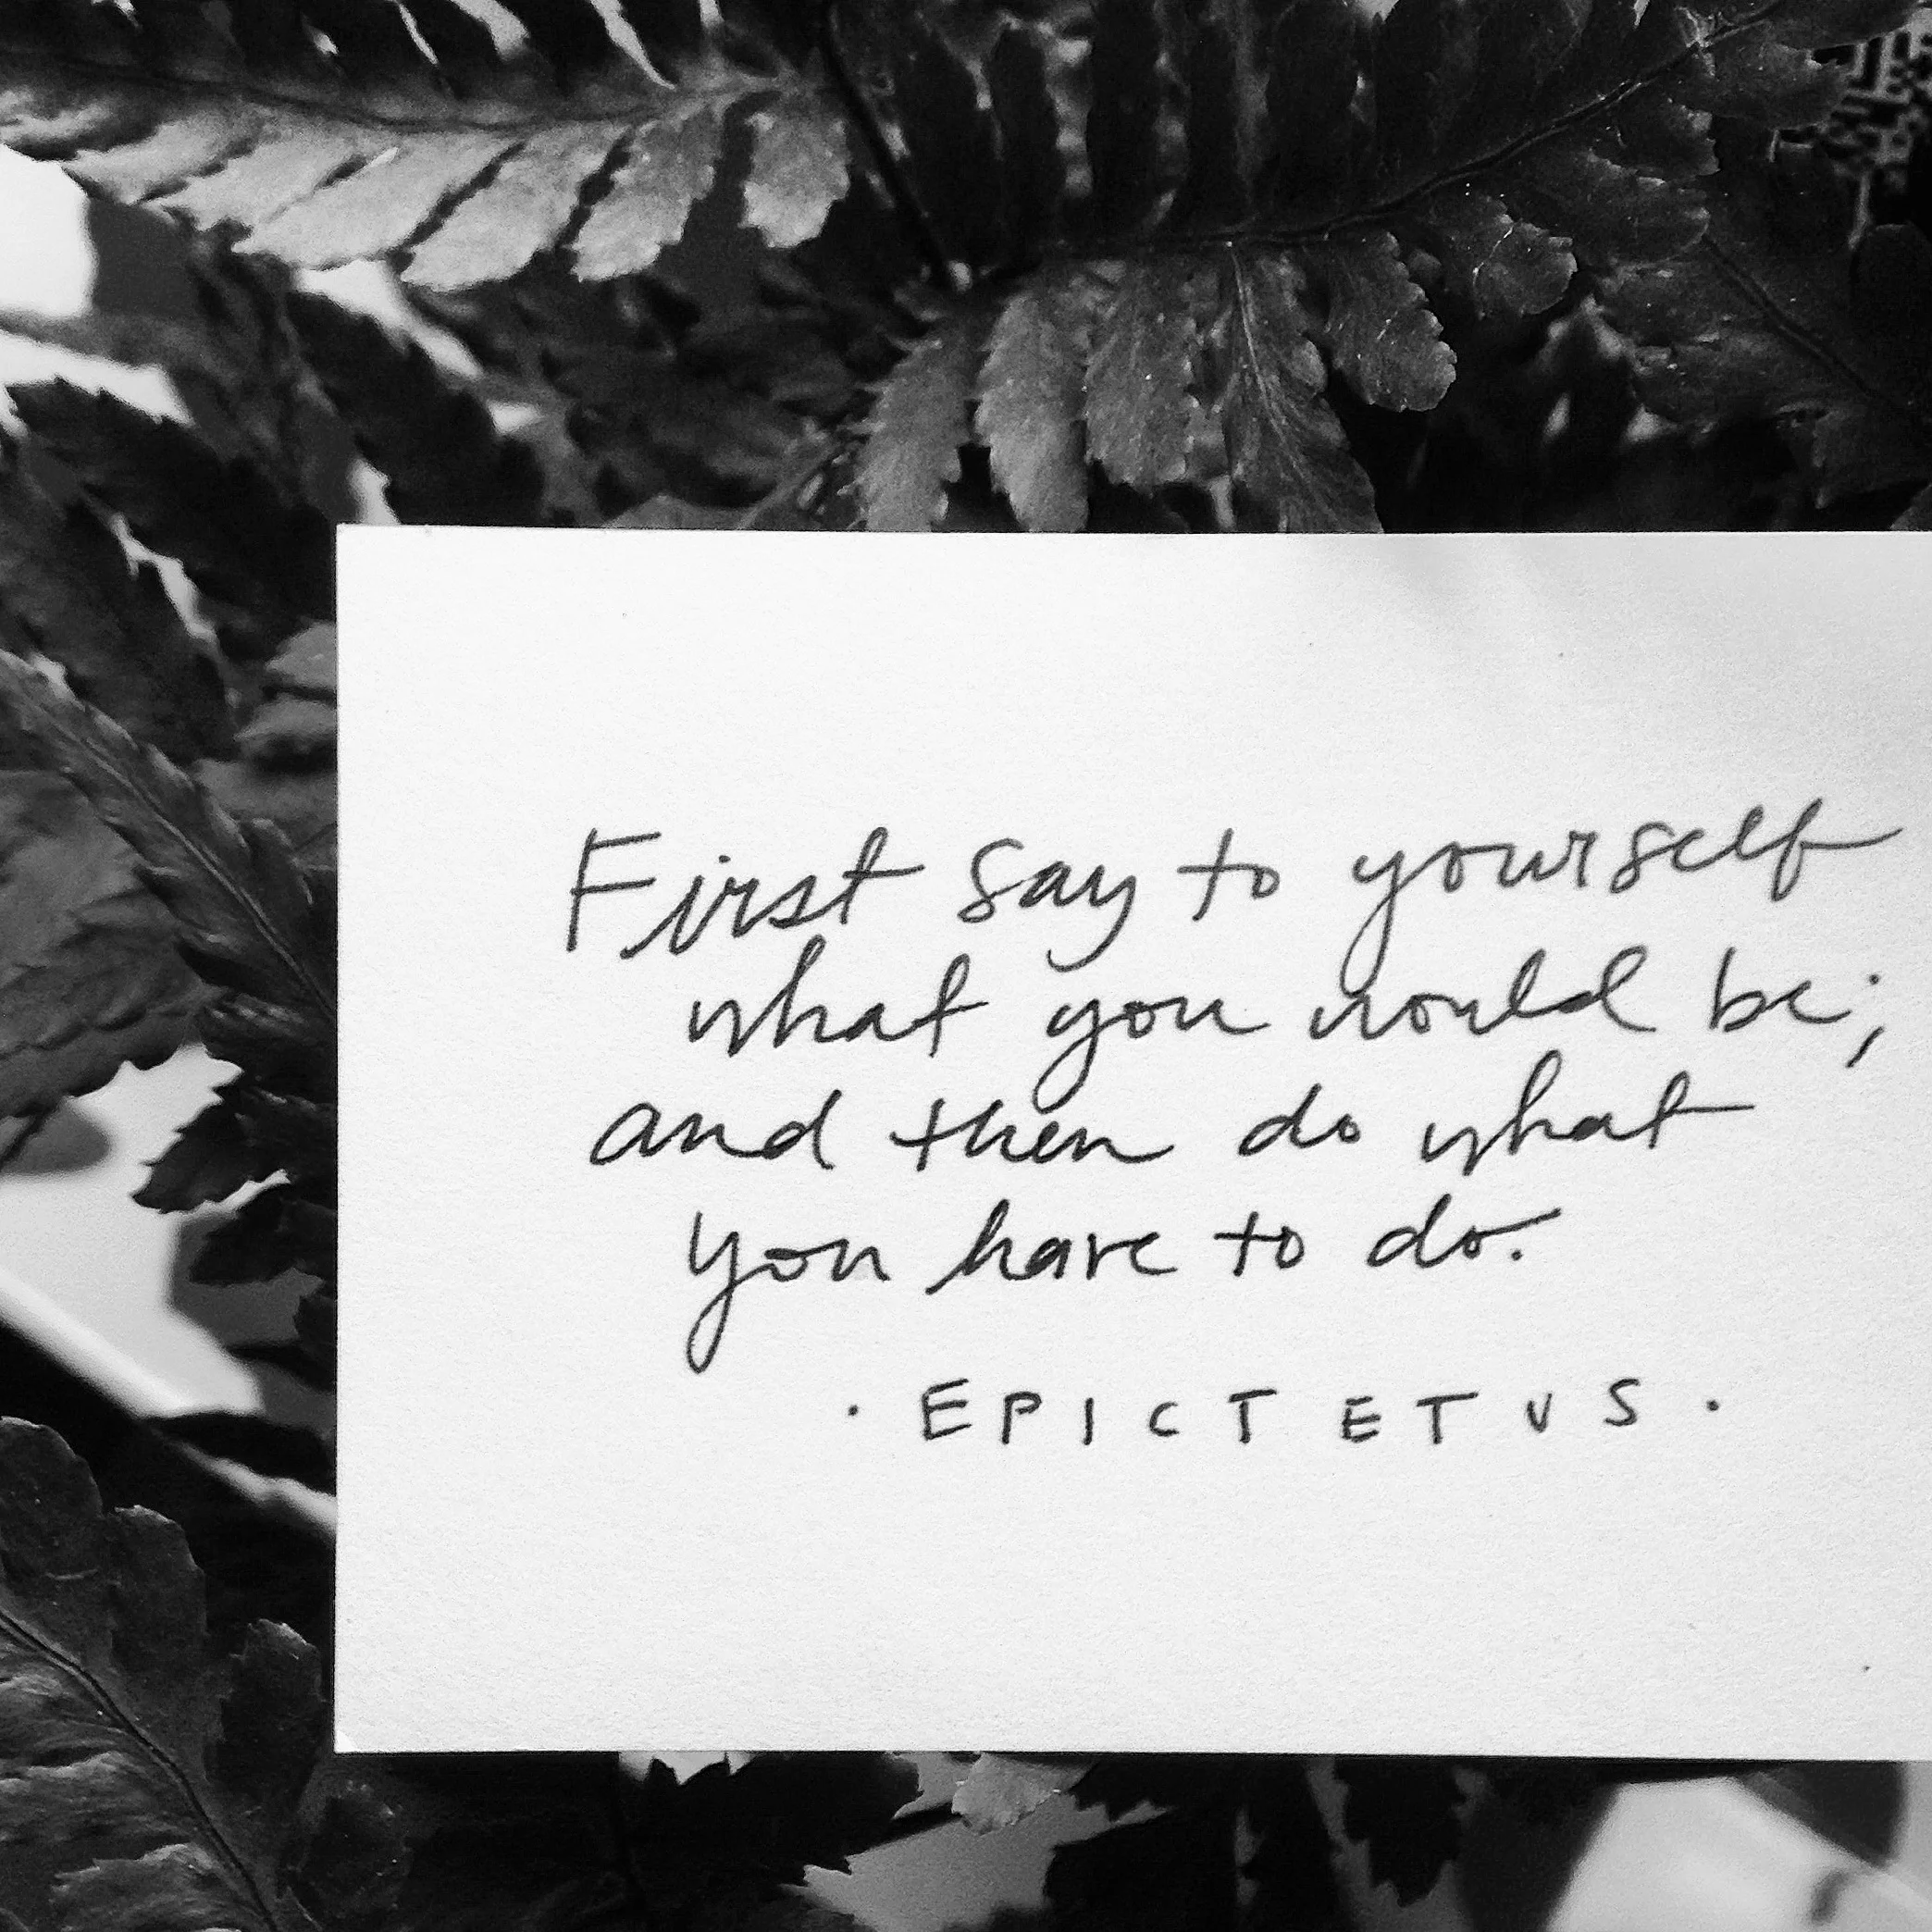 First say to yourself
what you would be;
and then do what
you have to do.
· EPICTETUS ·